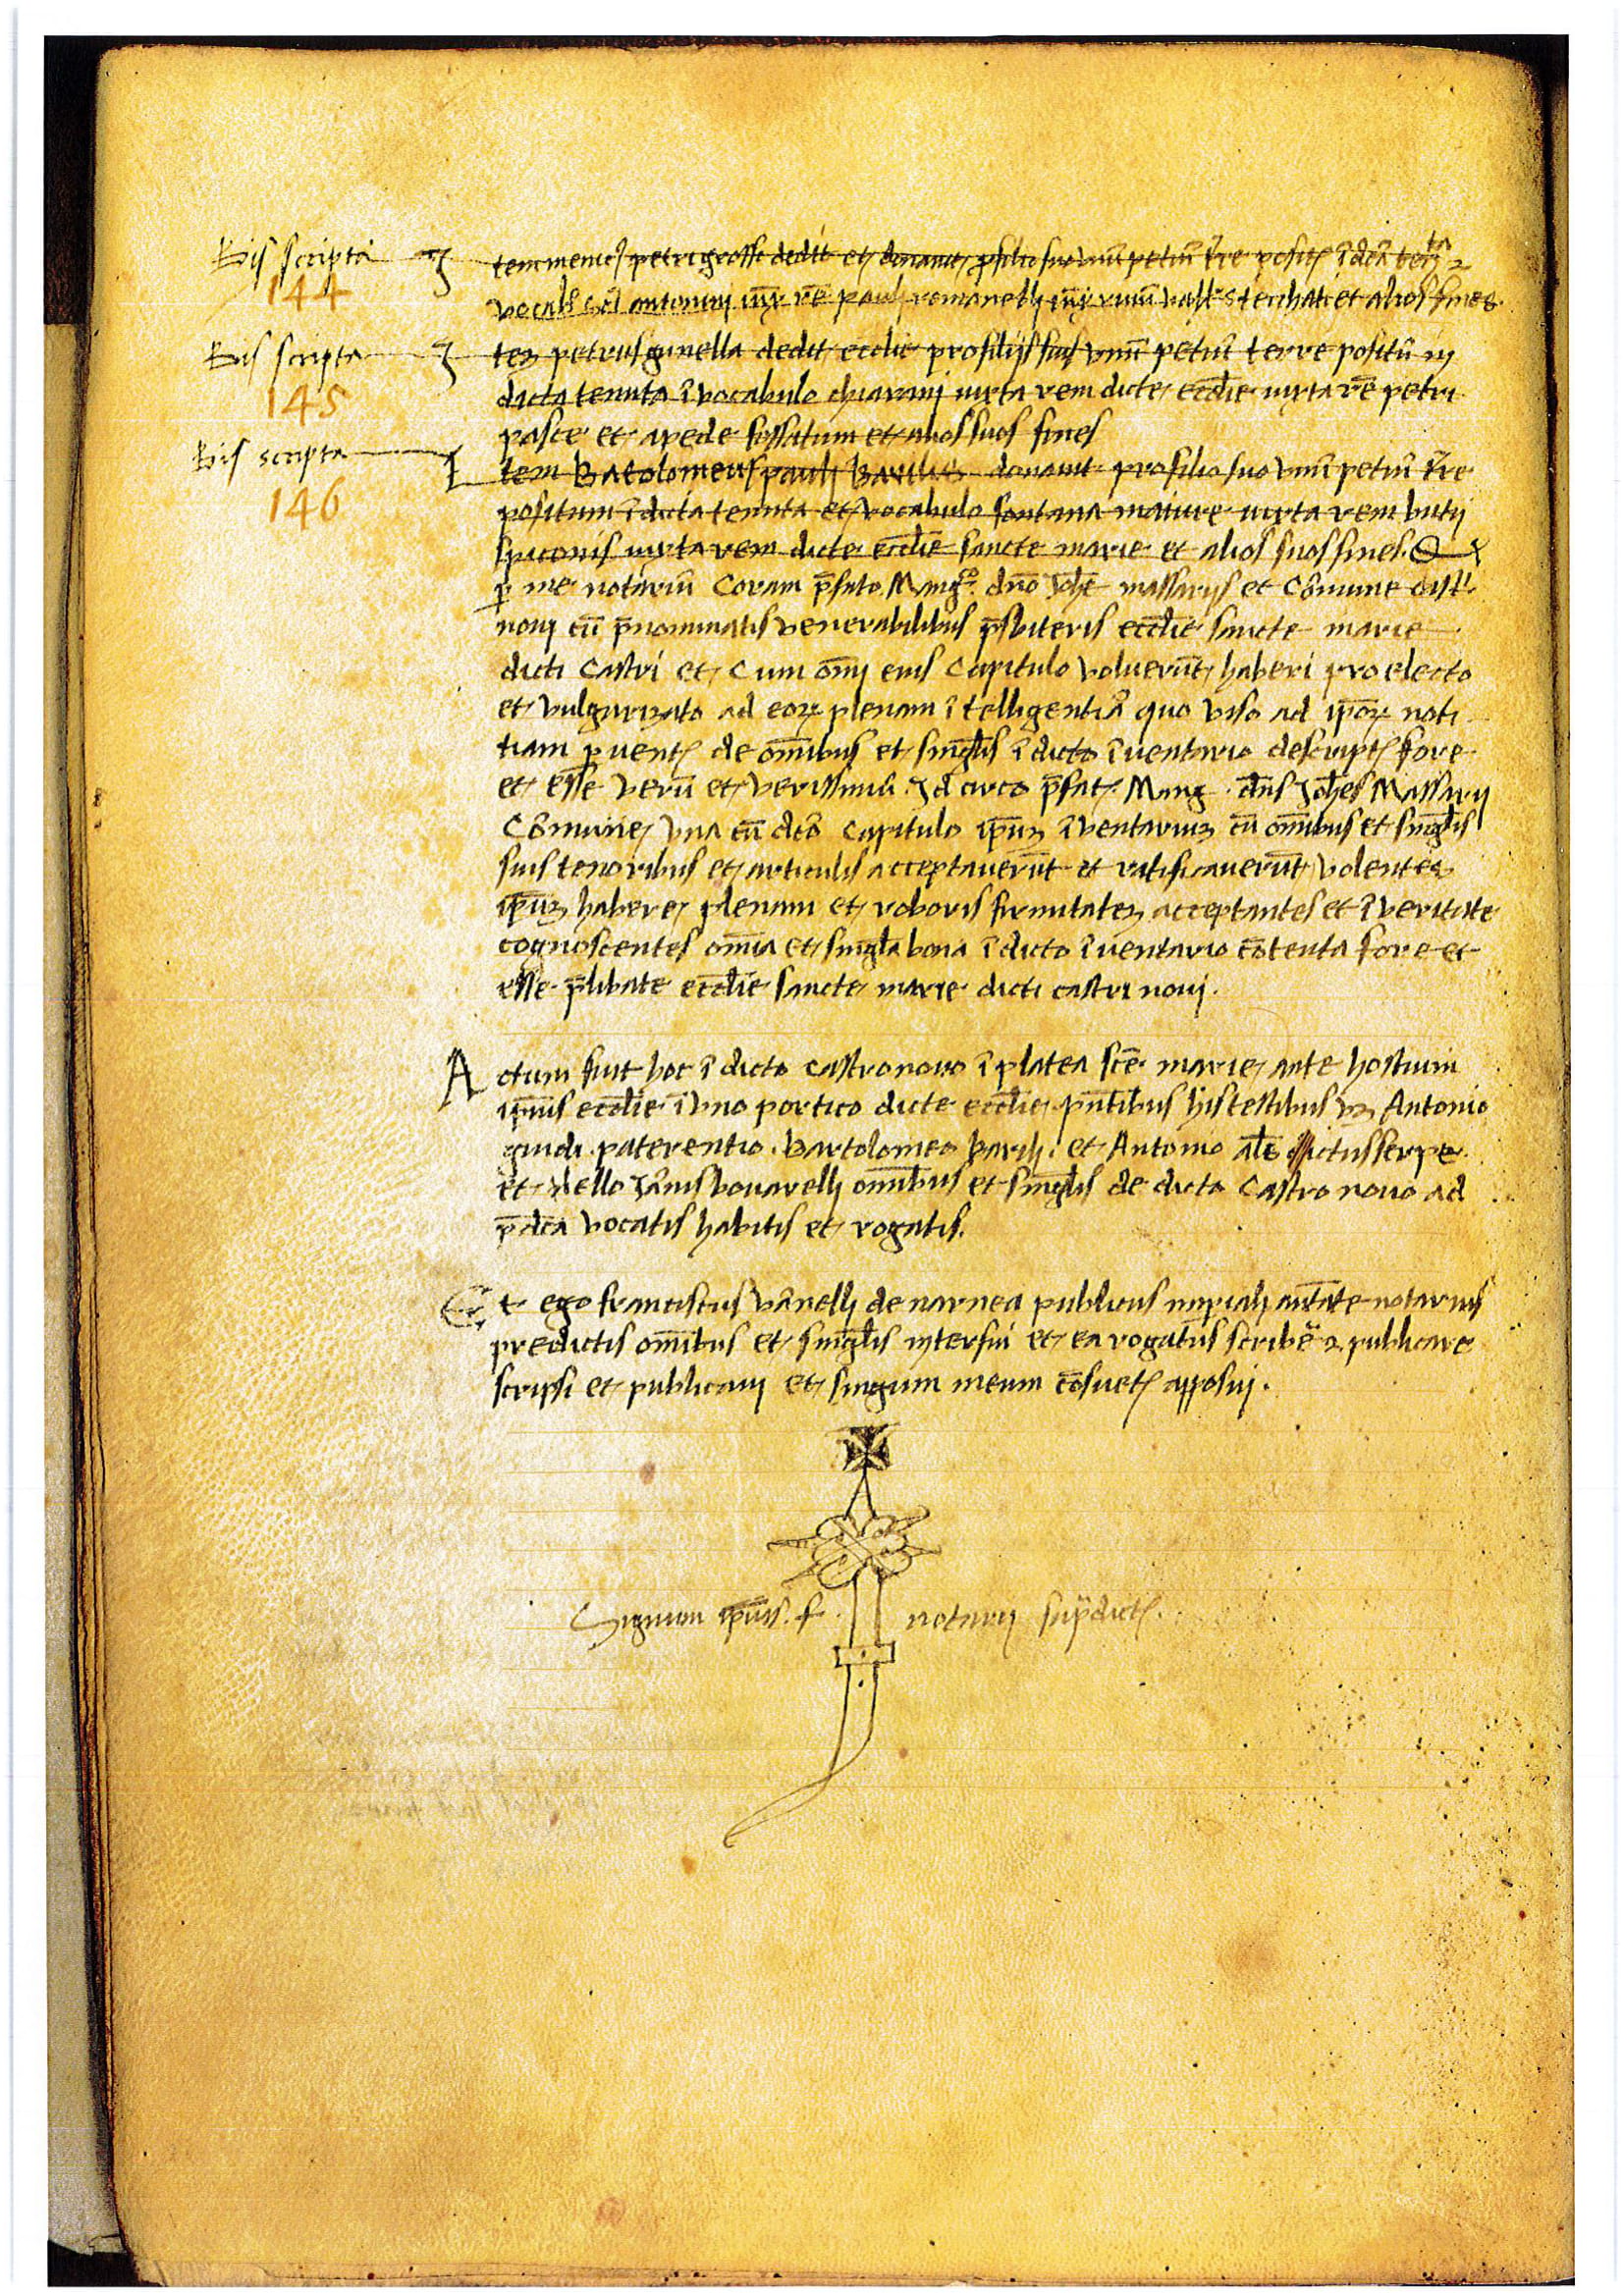 Bis scripta
144
Bis scripta
145
Bis scripta
146
tem petri grossi dedit et donavit p filio suo unū petiū tr̄e posit ī dc̄a
vocab antonini rē pauli romanelli et alios fines
tez petrus ginella dedit ecclie pro filijs suis unū petiū terre positū in
dicta tenuta ī vocabulo chiarani iuxta rem dicte ecclīe iuxta rē petri
pasce et apede fossatum et alios suos fines
Item Batolomeus pauli donavit pro filio suo unū petiū tr̄e
positum ī dicta tenuta et vocabulo fontana maiure iuxta rem butij
spiconis iuxta rem dicte ecclīe sancte marie et alios suos fines
p me notariū Coram p̄fato Mangco dn̄o Joh̄e massarijs et Cōmune cast
novi cū p̄nominatis venerabilibus p̄sbiteris ecclīe sancte marie
dicti Castri et Cum om̄i eius Capitulo voluerūt haberi pro electo
et vulgarizato ad eoꝝ plenam ītelligentiā quo viso ad ip̄oꝝ noti
tiam puent de om̄ibus et singl̄is ī dicto īuentario descript fore
et esse verū et verissimū. Id circo p̄fat Mang dn̄s Joh̄es Massarij
Cōmune una cū dc̄o capitulo ip̄uz īventariuz cū om̄ibus et singl̄is
suis tenoribus et articulis acceptaverūt et ratificaverūt volentes
ip̄uz habere plenam et roboris firmitatez acceptantes et ī veritate
cognoscentes om̄ia et singl̄a bona ī dicto īuentario cōtenta fore et
esse p̄libate ecclīe sancte marie dicti castri novi.
Actum fuit hoc ī dicto castronovo ī platea scē marie ante hostium
ip̄ius ecclīe ī uno portico dicte ecclīe pn̄tibus his testibus vz Antonio
guidi paterentio. Bartolomeo barili. et Antonio al̄s dictus serpe
et nello Jānis bonarelli om̄ibus et singl̄is de dicto Castro novo ad
p̄dc̄a vocatis habitis et rogatis.
Et ego franciscus vānelli de narnea publicus imp̄iali aut̄ate notarius
predictis om̄ibus et singl̄is interfui et ea rogatus scribē ⁊ publicare
scripsi et publicavi et singum meum cōsuet apposui.
Signum ip̄ius. f. notarij sup̄dict.